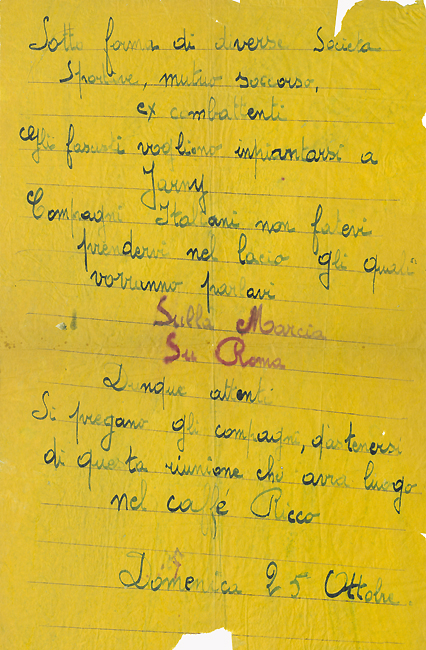 Sotto forma di diverse Societa
Sportive, mutuo soccorso,
ex combattenti
Gli fascisti vogliono inpiantarsi a
Jarny
Compagni Italiani non fatevi
prendervi nel lacio gli quali
vorranno parlavi
Sulla Marcia
Su Roma
Dunque attenti
Si pregano gli compagni, d'astenersi
di questa riunione che avra luogo
nel caffé Ricco
Domenica 25 Ottobre